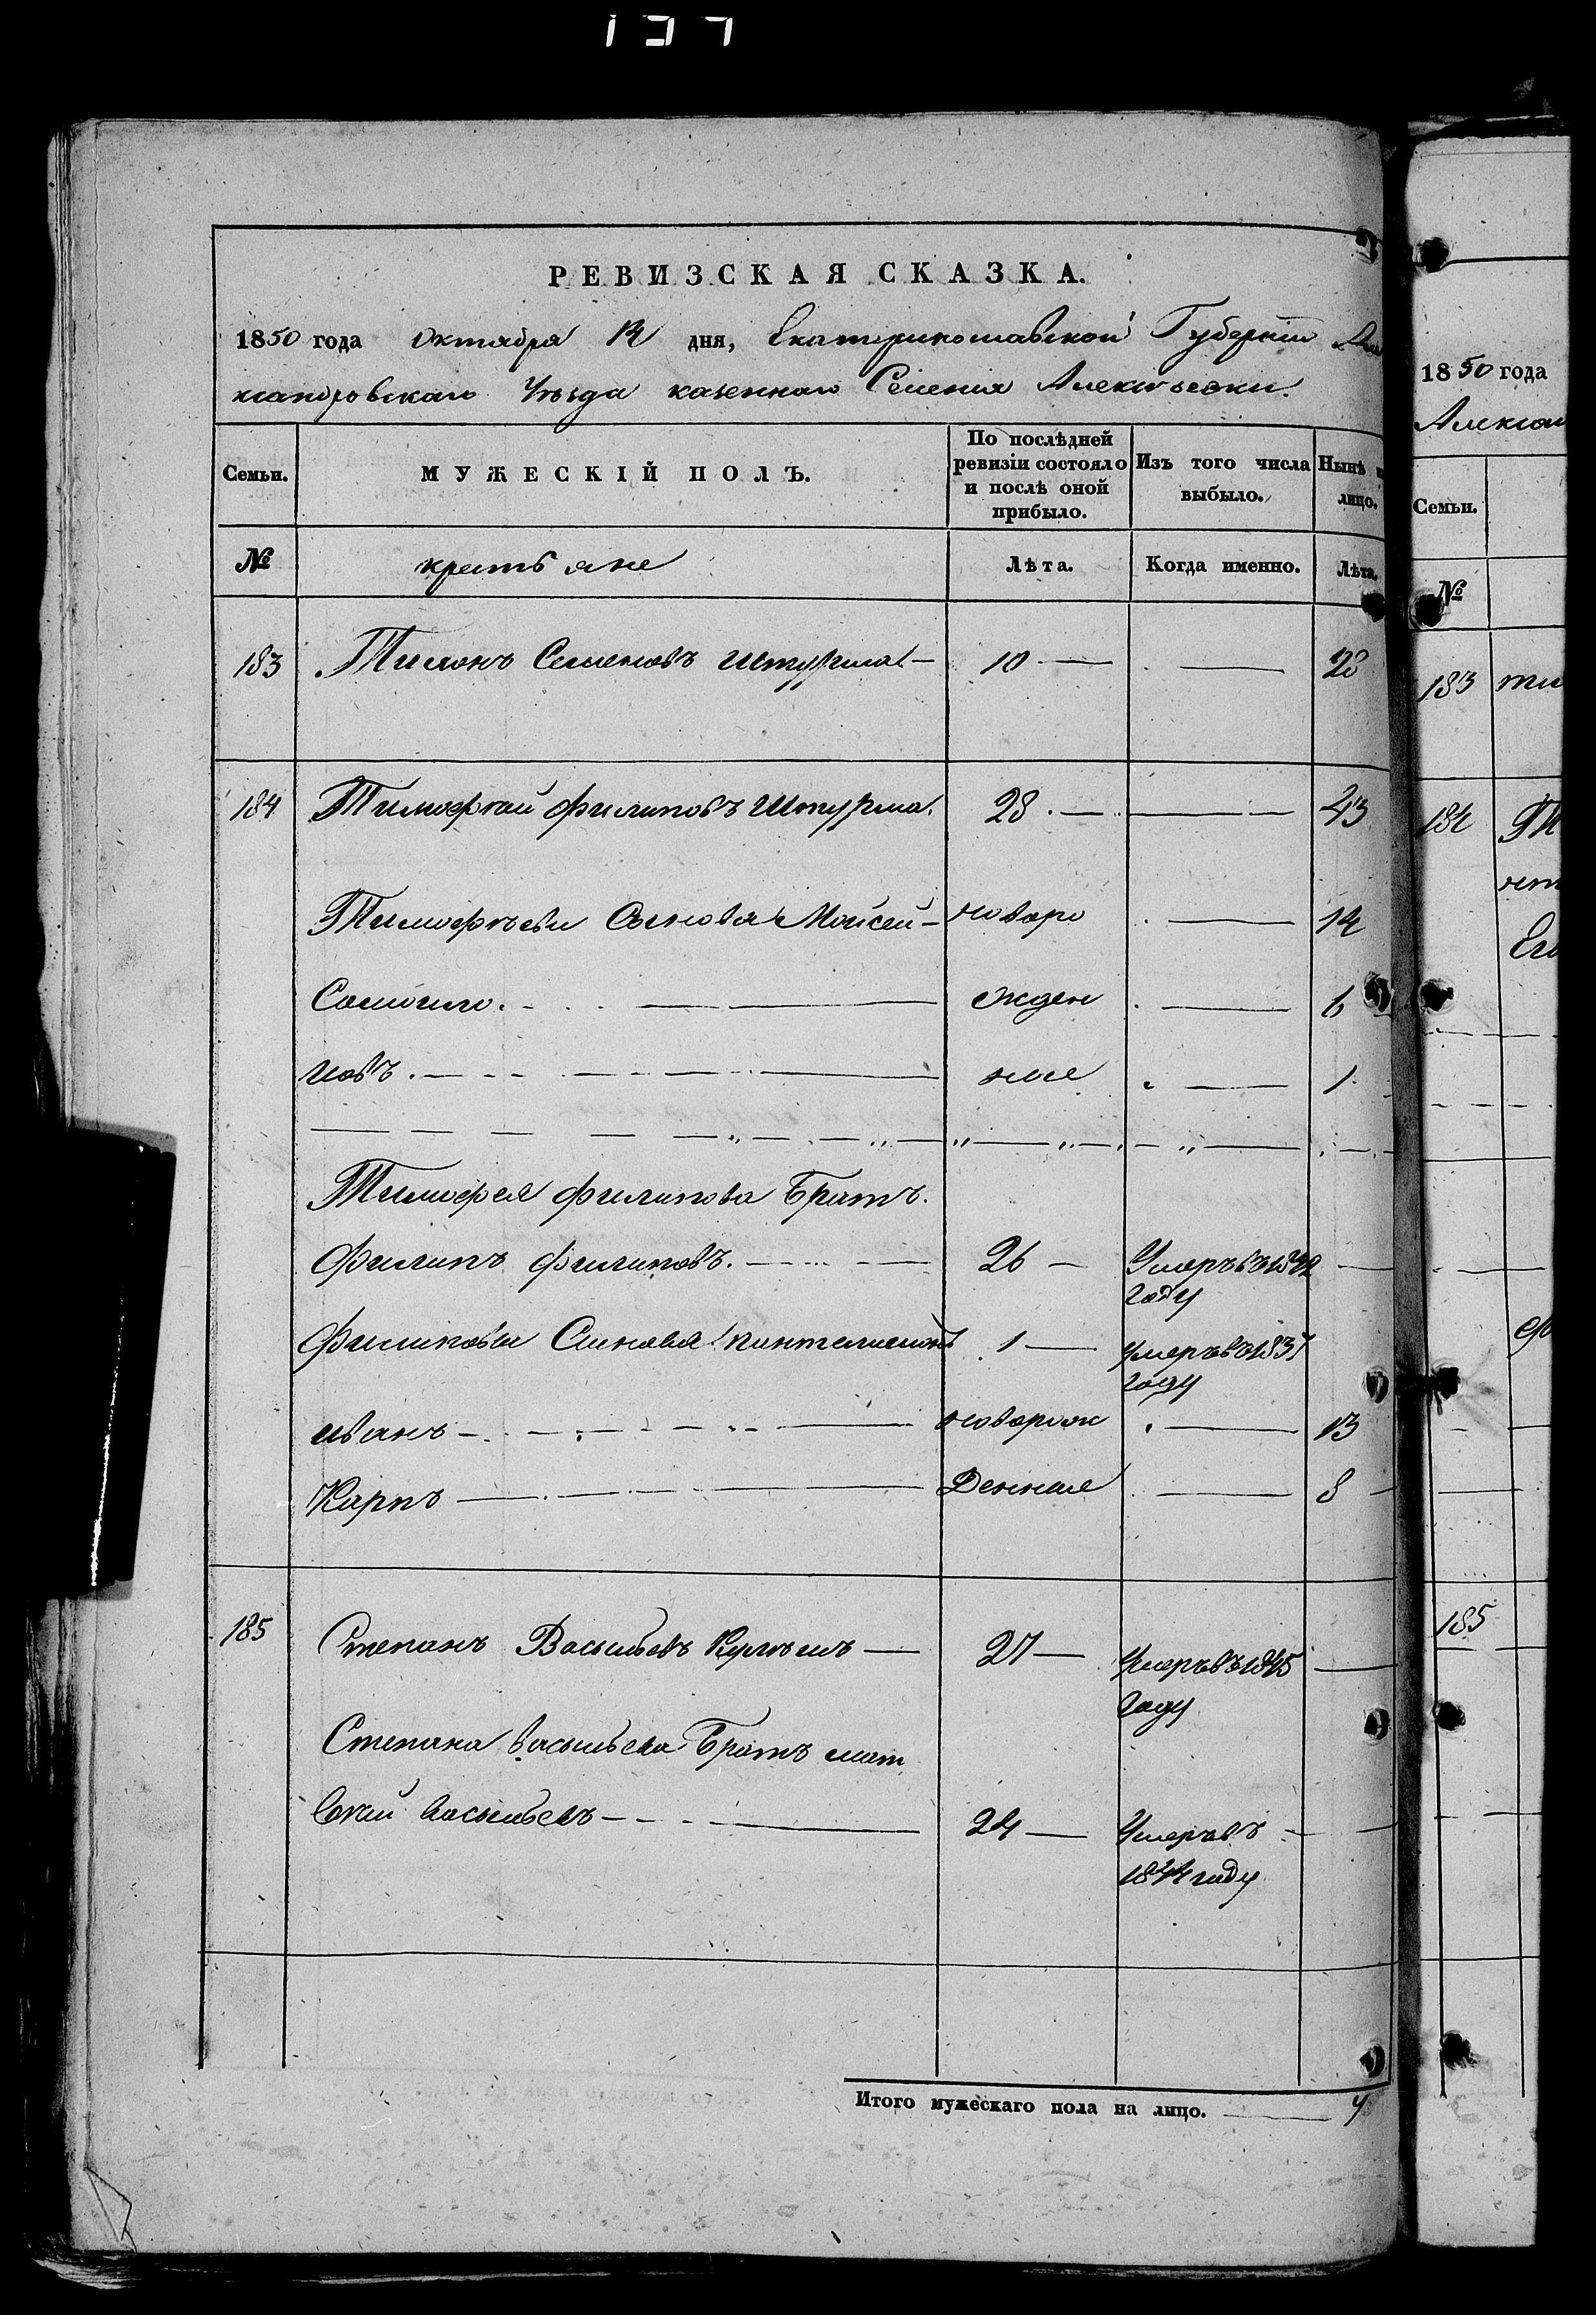 137
РЕВИЗСКАЯ СКАЗКА.
1850 года октября 12 дня, Екатеринославской Губерніи Але
ксандровскаго Уезда казеннаго Селенія Алексеевки.
Семьи.
МУЖЕСКІЙ ПОЛЪ.
По послѣдней ревизіи состояло и послѣ оной прибыло.
Изъ того числа выбыло.
Нынѣ
лицо.
№ крестьяне Лѣта. Когда именно. Лѣта.
183 Тимонъ Семеновъ Штурма — 10 — — 28
184 Тимофѣй филиповъ Штурма. 28 — — 43
Тимофѣеви Сыновя Моисей — новоро — 14
Самоило — жден — 6
иовъ — ние — 1
Тимофея филипова Братъ.
Филипъ филиповъ. — 26 — Умеръ въ 1842 —
году
Филиповы Синовя пантелимонъ 1 — умеръ въ 1837
году
иванъ — новорож — 13
Карпъ — Денние — 8
185 Степанъ Васильевъ — 27 — Умеръ въ 1845 —
году
Степана васильева Братъ мат
вѣй васильевъ — 24 — Умеръ въ —
1844 году
Итого мужескаго пола на лицо. — 7
1850 года
Алексан
Семьи.
№
183 ти
184 Ти
Его
185